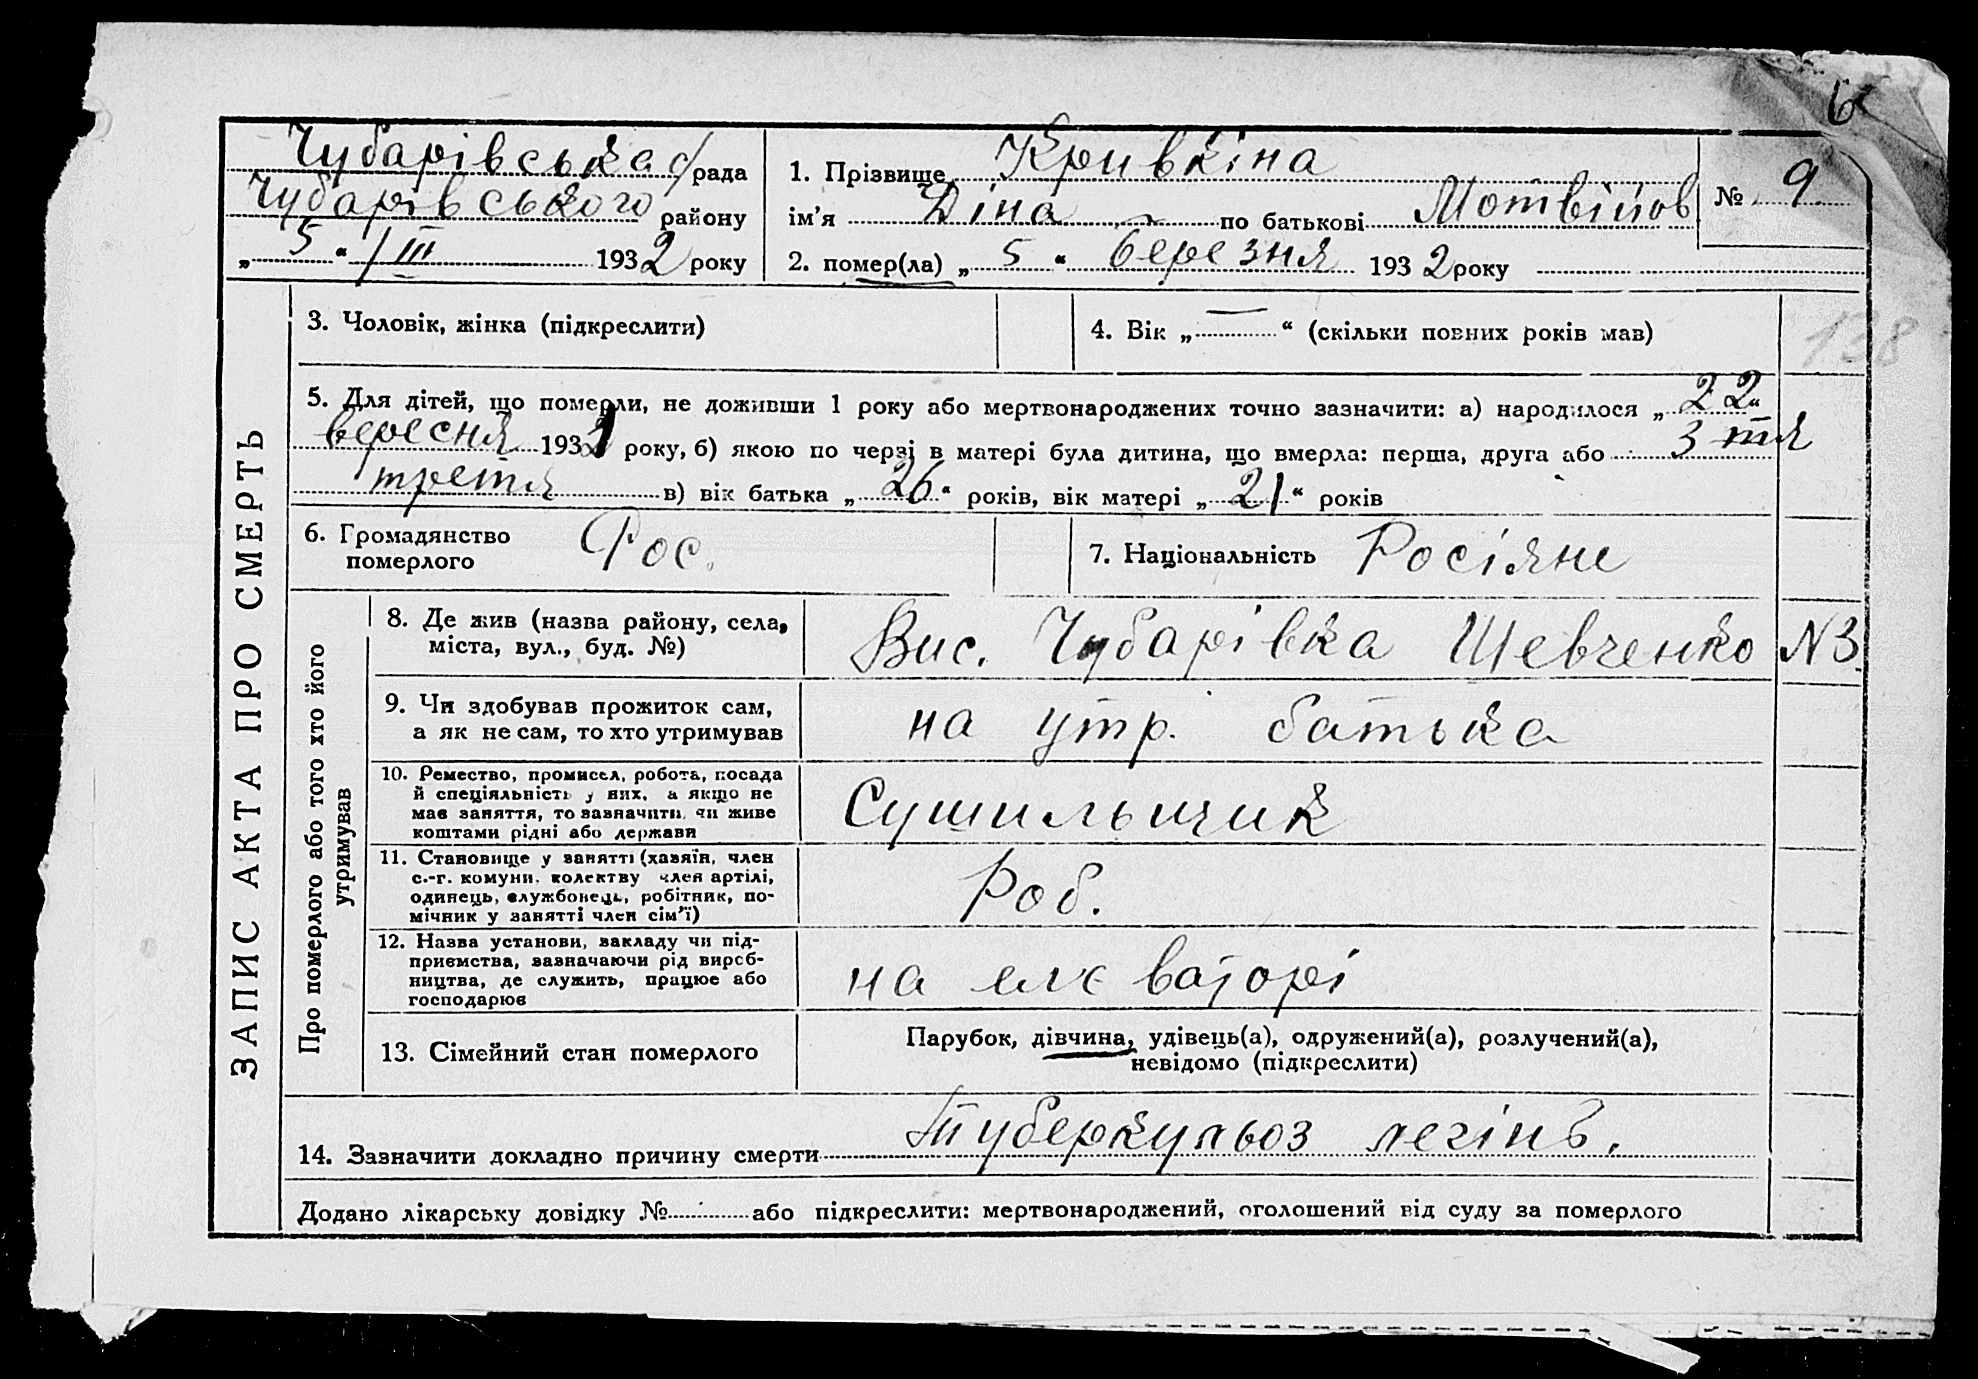 6
Чубарівська с/рада
Чубарівського району
„ 5 “ / III 1932 року
1. Прізвище Кривкіна
ім’я Діна по батькові Мотвійов
№ 9
2. помер(ла) „ 5 “ березня 1932 року
ЗАПИС АКТА ПРО СМЕРТЬ
3. Чоловік, жінка (підкреслити)
4. Вік „ — “ (скільки повних років мав)
138
5. Для дітей, що померли, не доживши 1 року або мертвонароджених точно зазначити: а) народилося „ 22 “
вересня 1931 року, б) якою по черзі в матері була дитина, що вмерла: перша, друга або 3 тя
третя в) вік батька „ 26 “ років, вік матері „ 21 “ років
6. Громадянство
померлого Рос.
7. Національність Росіяне
Про померлого або того хто його
утримував
8. Де жив (назва району, села,
міста, вул., буд. №)
Вис. Чубарівка Шевченко N 3.
9. Чи здобував прожиток сам,
а як не сам, то хто утримував
на утр. батька
10. Ремество, промисел, робота, посада
й спеціяльність у них, а якщо не
має заняття, то зазначити, чи живе
коштами рідні або держави
Сушильщик
11. Становище у занятті (хазяїн, член
с.-г. комуни, колектву член артілі,
одинець, службовець, робітник, по-
мічник у занятті член сім’ї)
Роб.
12. Назва установи, закладу чи під-
приємства, зазначаючи рід вироб-
ництва, де служить, працює або
господарює
на елєваторі
13. Сімейний стан померлого
Парубок, дівчина, удівець(а), одружений(а), розлучений(а),
невідомо (підкреслити)
14. Зазначити докладно причину смерти Туберкульоз легінь.
Додано лікарську довідку № або підкреслити: мертвонароджений, оголошений від суду за померлого